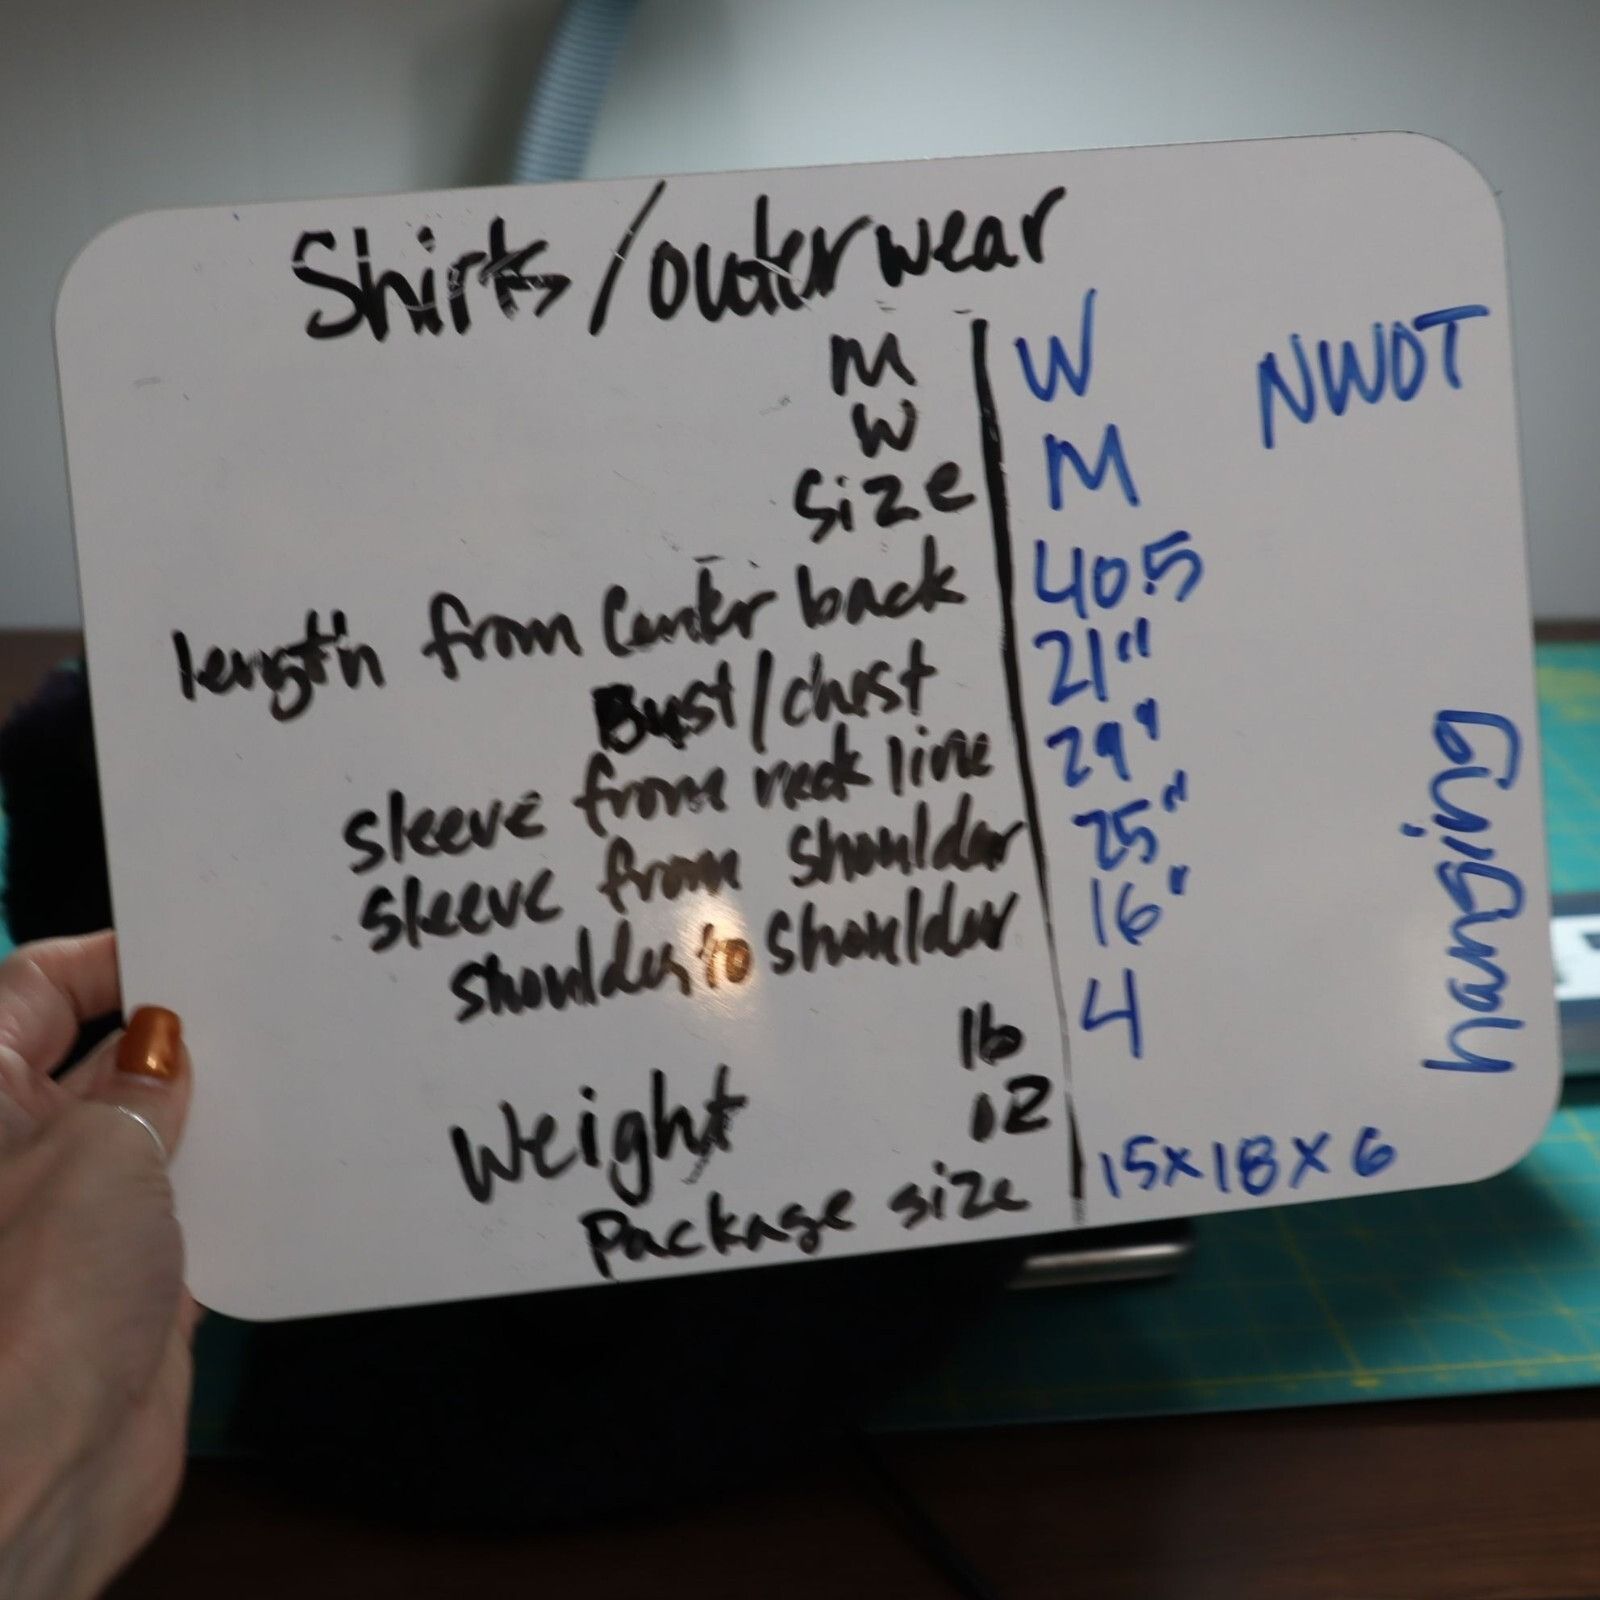 Shirts/outerwear
M W NWOT
W
Size M
length from Center back 40.5
Bust/chest 21"
sleeve from neck line 29"
sleeve from shoulder 25"
shoulder to shoulder 16"
lb 4
Weight oz
Package size 15x18x6
hanging